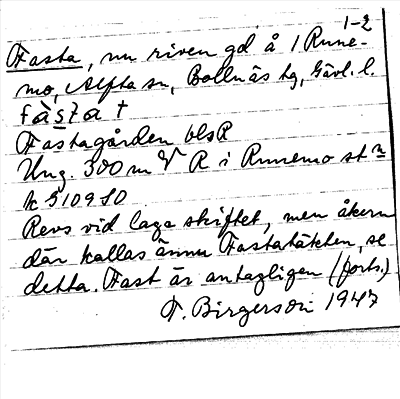 1-2
Fasta, nu riven gd å 1 Rune-
mo, Alfta sn, Bollnäs tg, Gävl. l.
fàsta t
Fastagården blsR
Ung. 300 m V R i Runemo st n
k 5109 SO
Revs vid laga skiftet, men åkern
där kallas ännu Fastatäkten, se
detta. Fast är antagligen (forts.)
F. Birgerson 1947